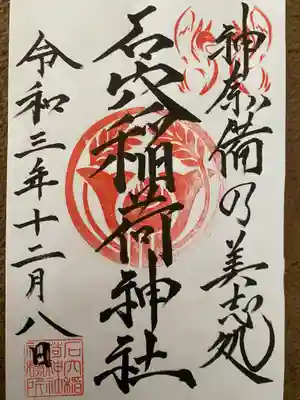 神奈備の美志処
石穴稲荷神社
令和三年十二月八日
石穴稲
荷神社